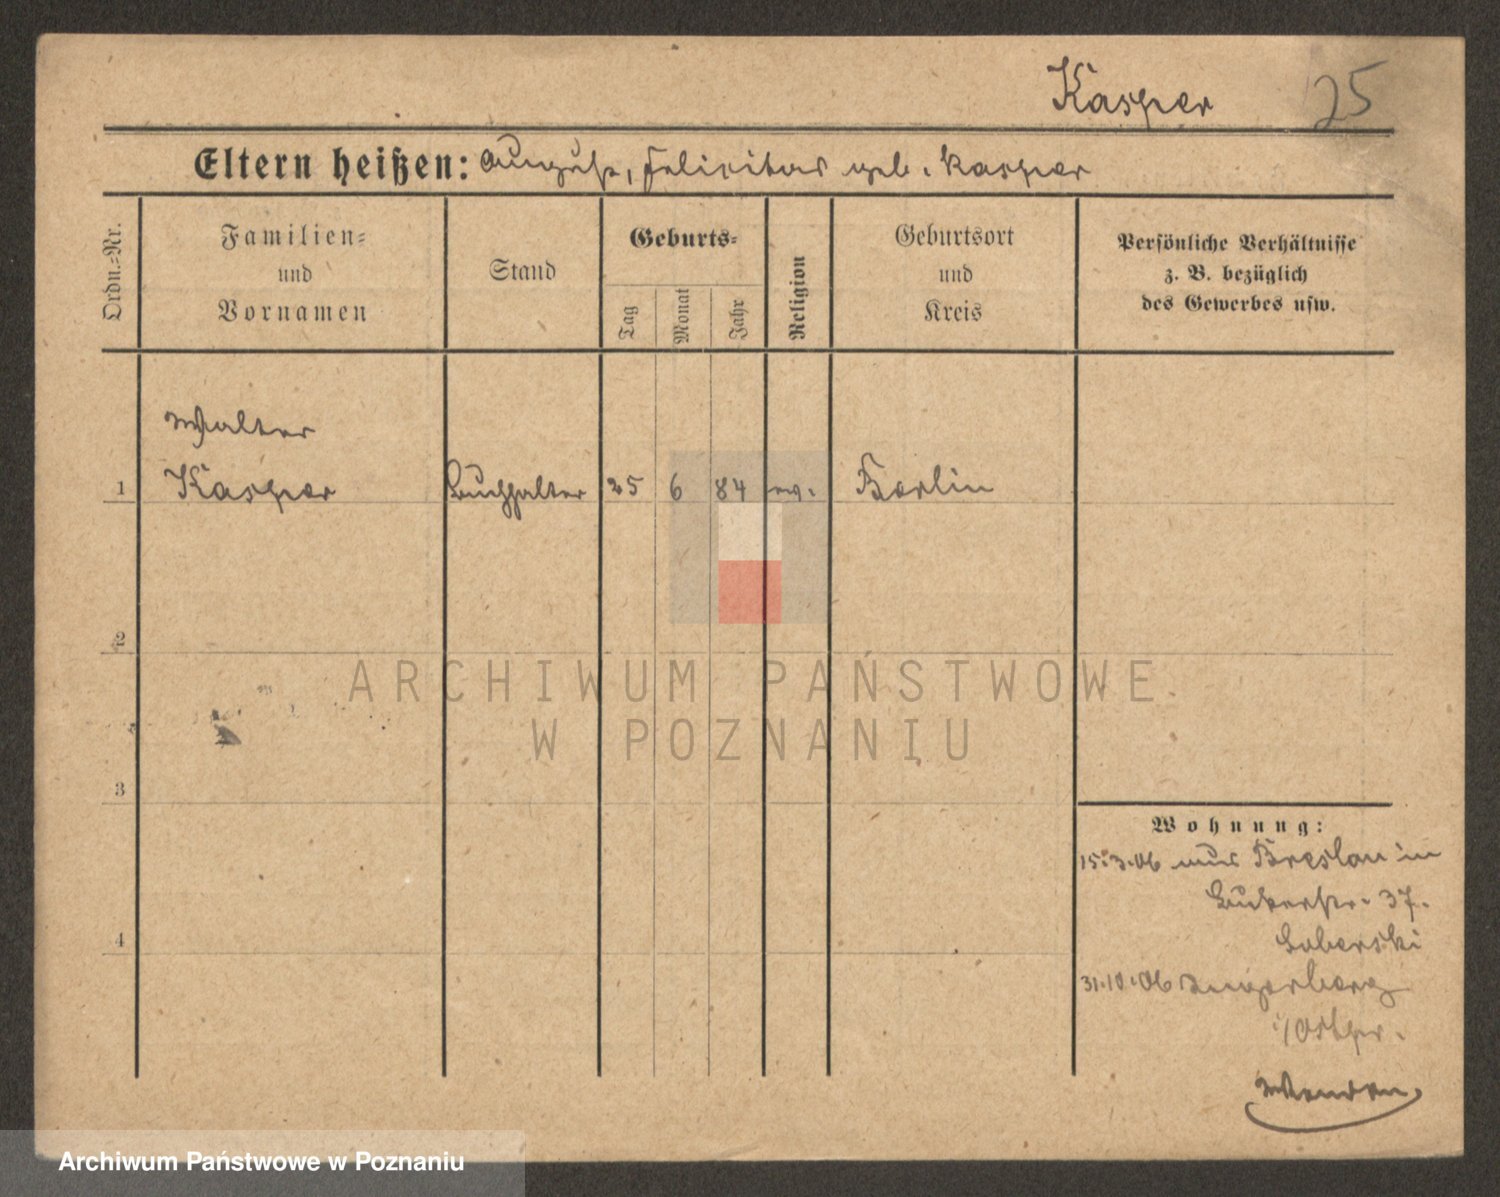 Kasper 25
Eltern heißen: August, Felicitas geb. Kasper
Ordn.-Nr.
Familien-
und
Vornamen
Stand
Geburts-
Tag
Monat
Jahr
Religion
Geburtsort
und
Kreis
Persönliche Verhältnisse
z. B. bezüglich
des Gewerbes usw.
Walter
1 Kasper Buchhalter 25 6 84 ev. Berlin
2
3
4
Wohnung:
15.3.06 aus Breslau in
Bukerstr. 37.
31.10.06 Angerburg
i/Ostpr.
ARCHIWUM PAŃSTWOWE
W POZNANIU
Archiwum Państwowe w Poznaniu